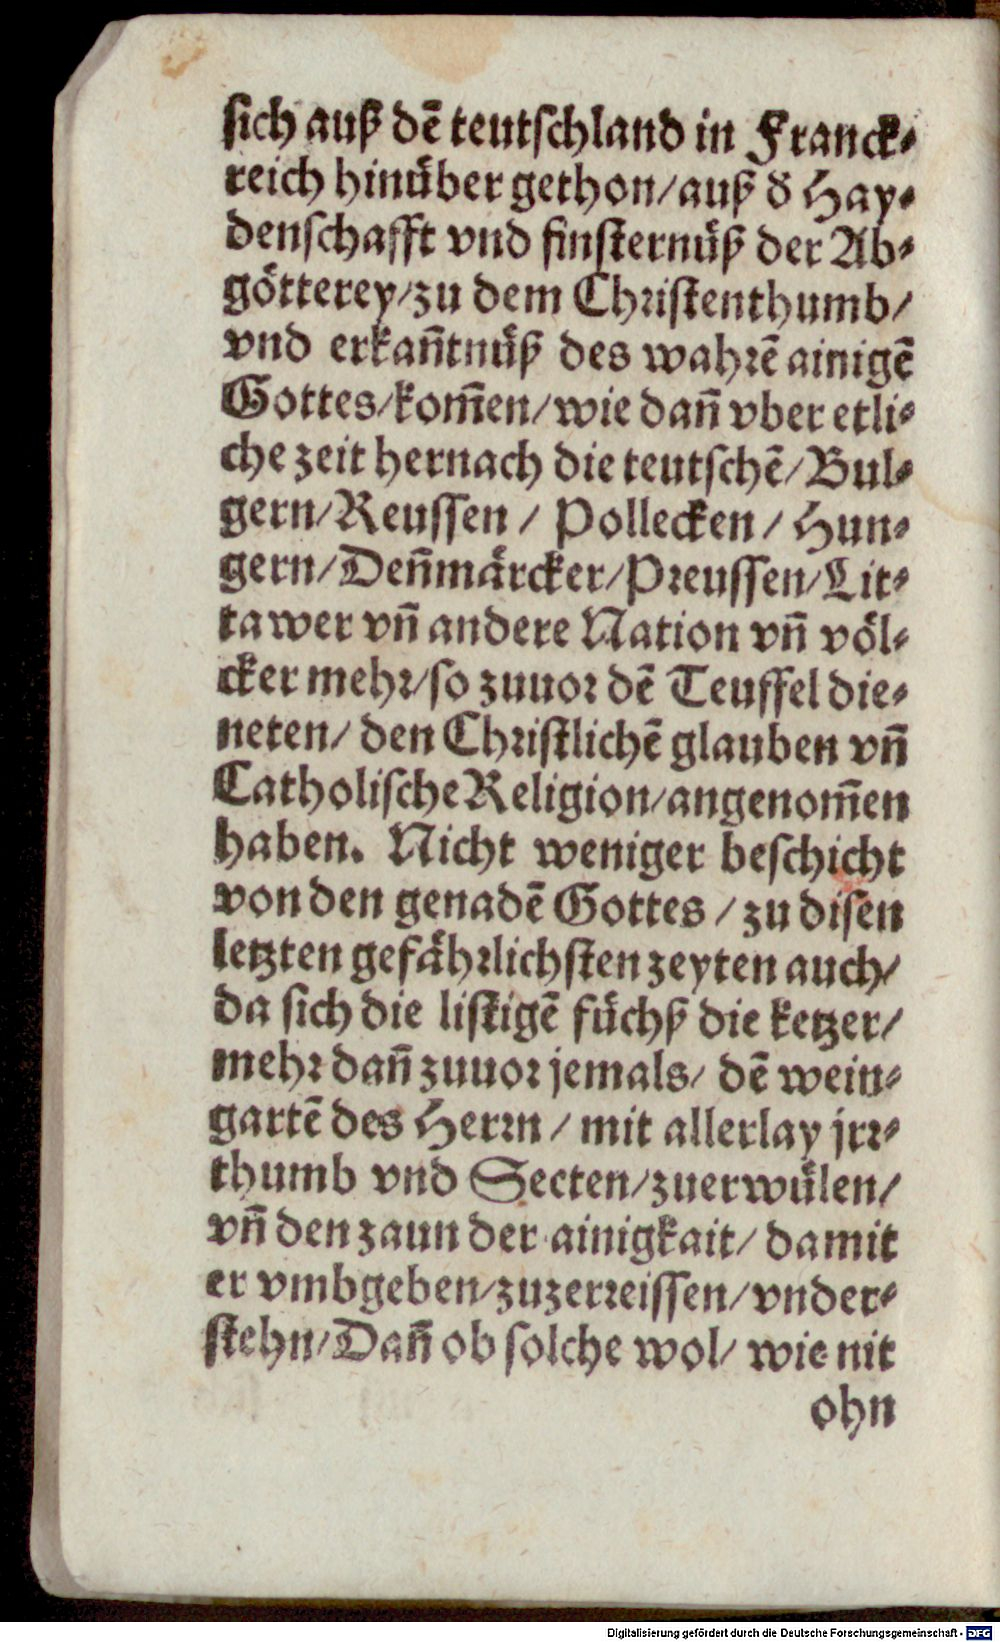 sich auß dẽ teutschland in Franck-
reich hinüber gethon/ auß d̕ Hay-
denschafft vnd finsternüß der Ab-
götterey/ zu dem Christenthumb/
vnd erkañtnüß des wahrẽ ainigẽ
Gottes/ kom̃en/ wie dañ vber etli-
che zeit hernach die teutschẽ/ Bul-
gern/ Reussen / Pollecken / Hun-
gern/ Deñmärcker/ Preussen/ Lit-
tawer vñ andere Nation vñ völ-
cker mehr/ so zuuor dẽ Teuffel die-
neten/ den Christlichẽ glauben vñ
Catholische Religion/ angenom̃en
haben. Nicht weniger beschicht
von den genadẽ Gottes / zu disen
letzten gefährlichsten zeyten auch/
da sich die listigẽ füchß die ketzer/
mehr dañ zuuor jemals/ dẽ wein-
gartẽ des Herrn / mit allerlay jrr-
thumb vnd Secten/ zuerwülen/
vñ den zaun der ainigkait/ damit
er vmbgeben/ zuzerreissen/ vnder-
stehn/ Dañ ob solche wol/ wie nit
ohn
Digitalisierung gefördert durch die Deutsche Forschungsgemeinschaft - DFG